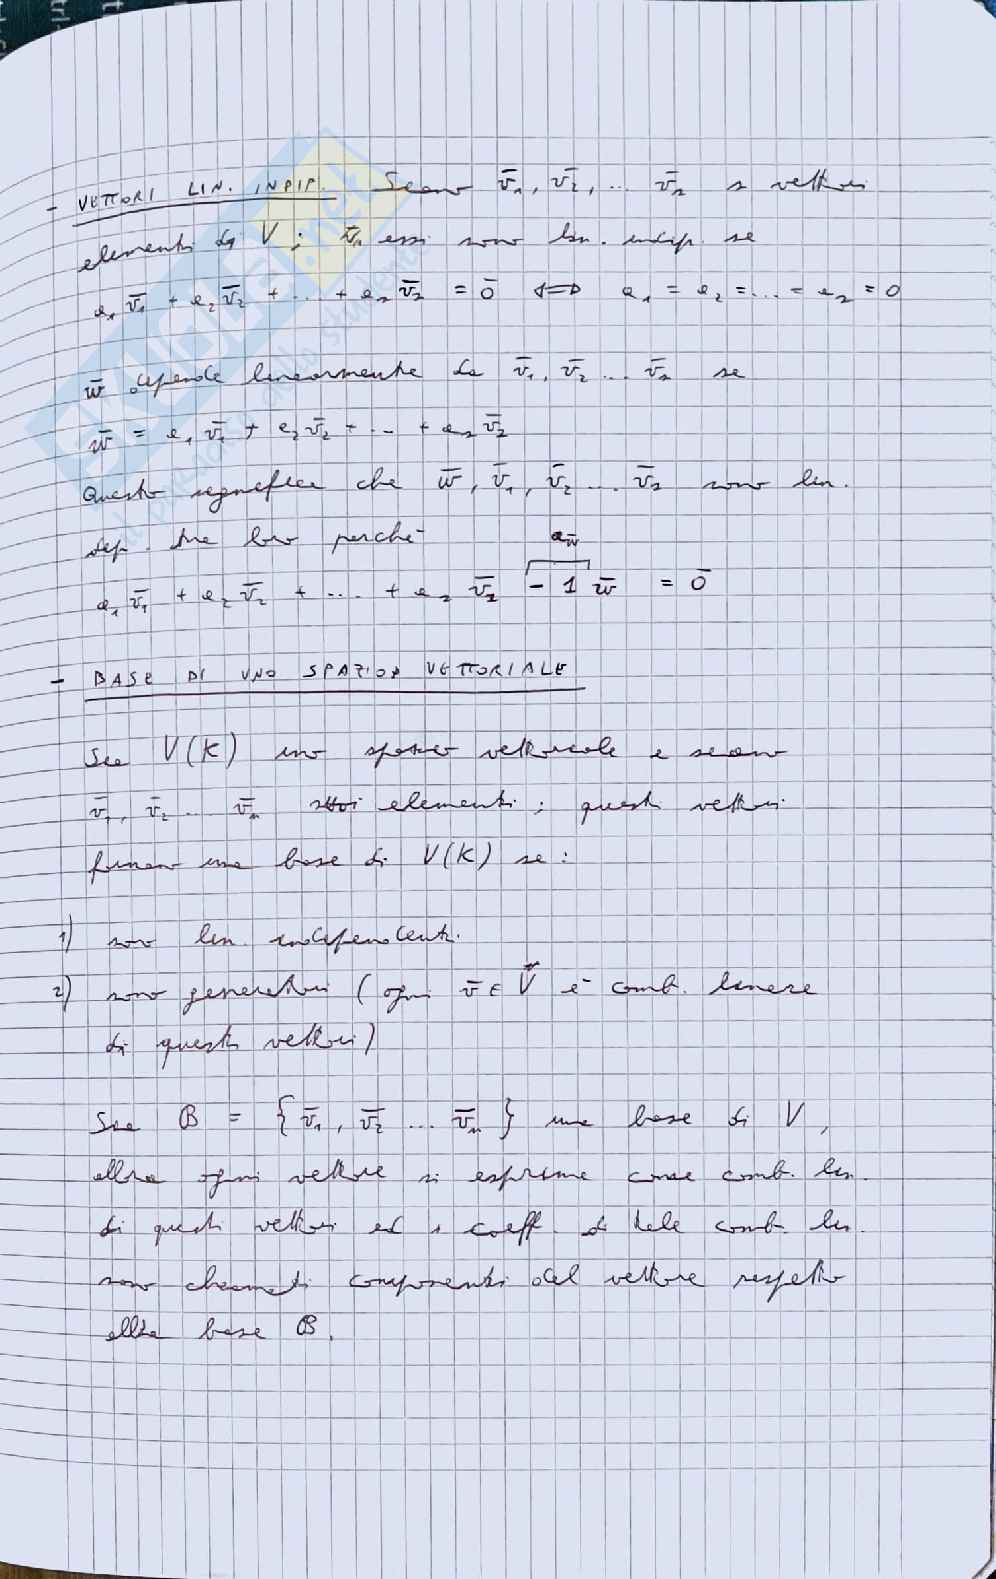 - VETTORI LIN. INDIP. Siano v̄₁, v̄₂, ... v̄ₙ i vettori
elementi di V; essi sono lin. indip. se
a₁ v̄₁ + a₂ v̄₂ + ... + aₙ v̄ₙ = 0̄ ⟺ a₁ = a₂ = ... = aₙ = 0
w̄ dipende linearmente da v̄₁, v̄₂ ... v̄ₙ se
w̄ = a₁ v̄₁ + a₂ v̄₂ + ... + aₙ v̄ₙ
Questo significa che w̄, v̄₁, v̄₂ ... v̄ₙ sono lin.
dip. tra loro perché
a_w̄
a₁ v̄₁ + a₂ v̄₂ + .... + aₙ v̄ₙ - 1 w̄ = 0̄
- BASE DI UNO SPAZIO VETTORIALE
Sia V(K) uno spazio vettoriale e siano
v̄₁, v̄₂ ... v̄ₙ suoi elementi; questi vettori
formano una base di V(K) se:
1) sono lin. indipendenti.
2) sono generatori (ogni v̄ ∈ V è comb. lineare
di questi vettori)
Sia B = {v̄₁, v̄₂ ... v̄ₙ} una base di V,
allora ogni vettore si esprime come comb. lin.
di questi vettori ed i coeff. di tale comb. lin.
sono chiamati componenti del vettore rispetto
alla base B.
skuola.net
il paradiso dello studente